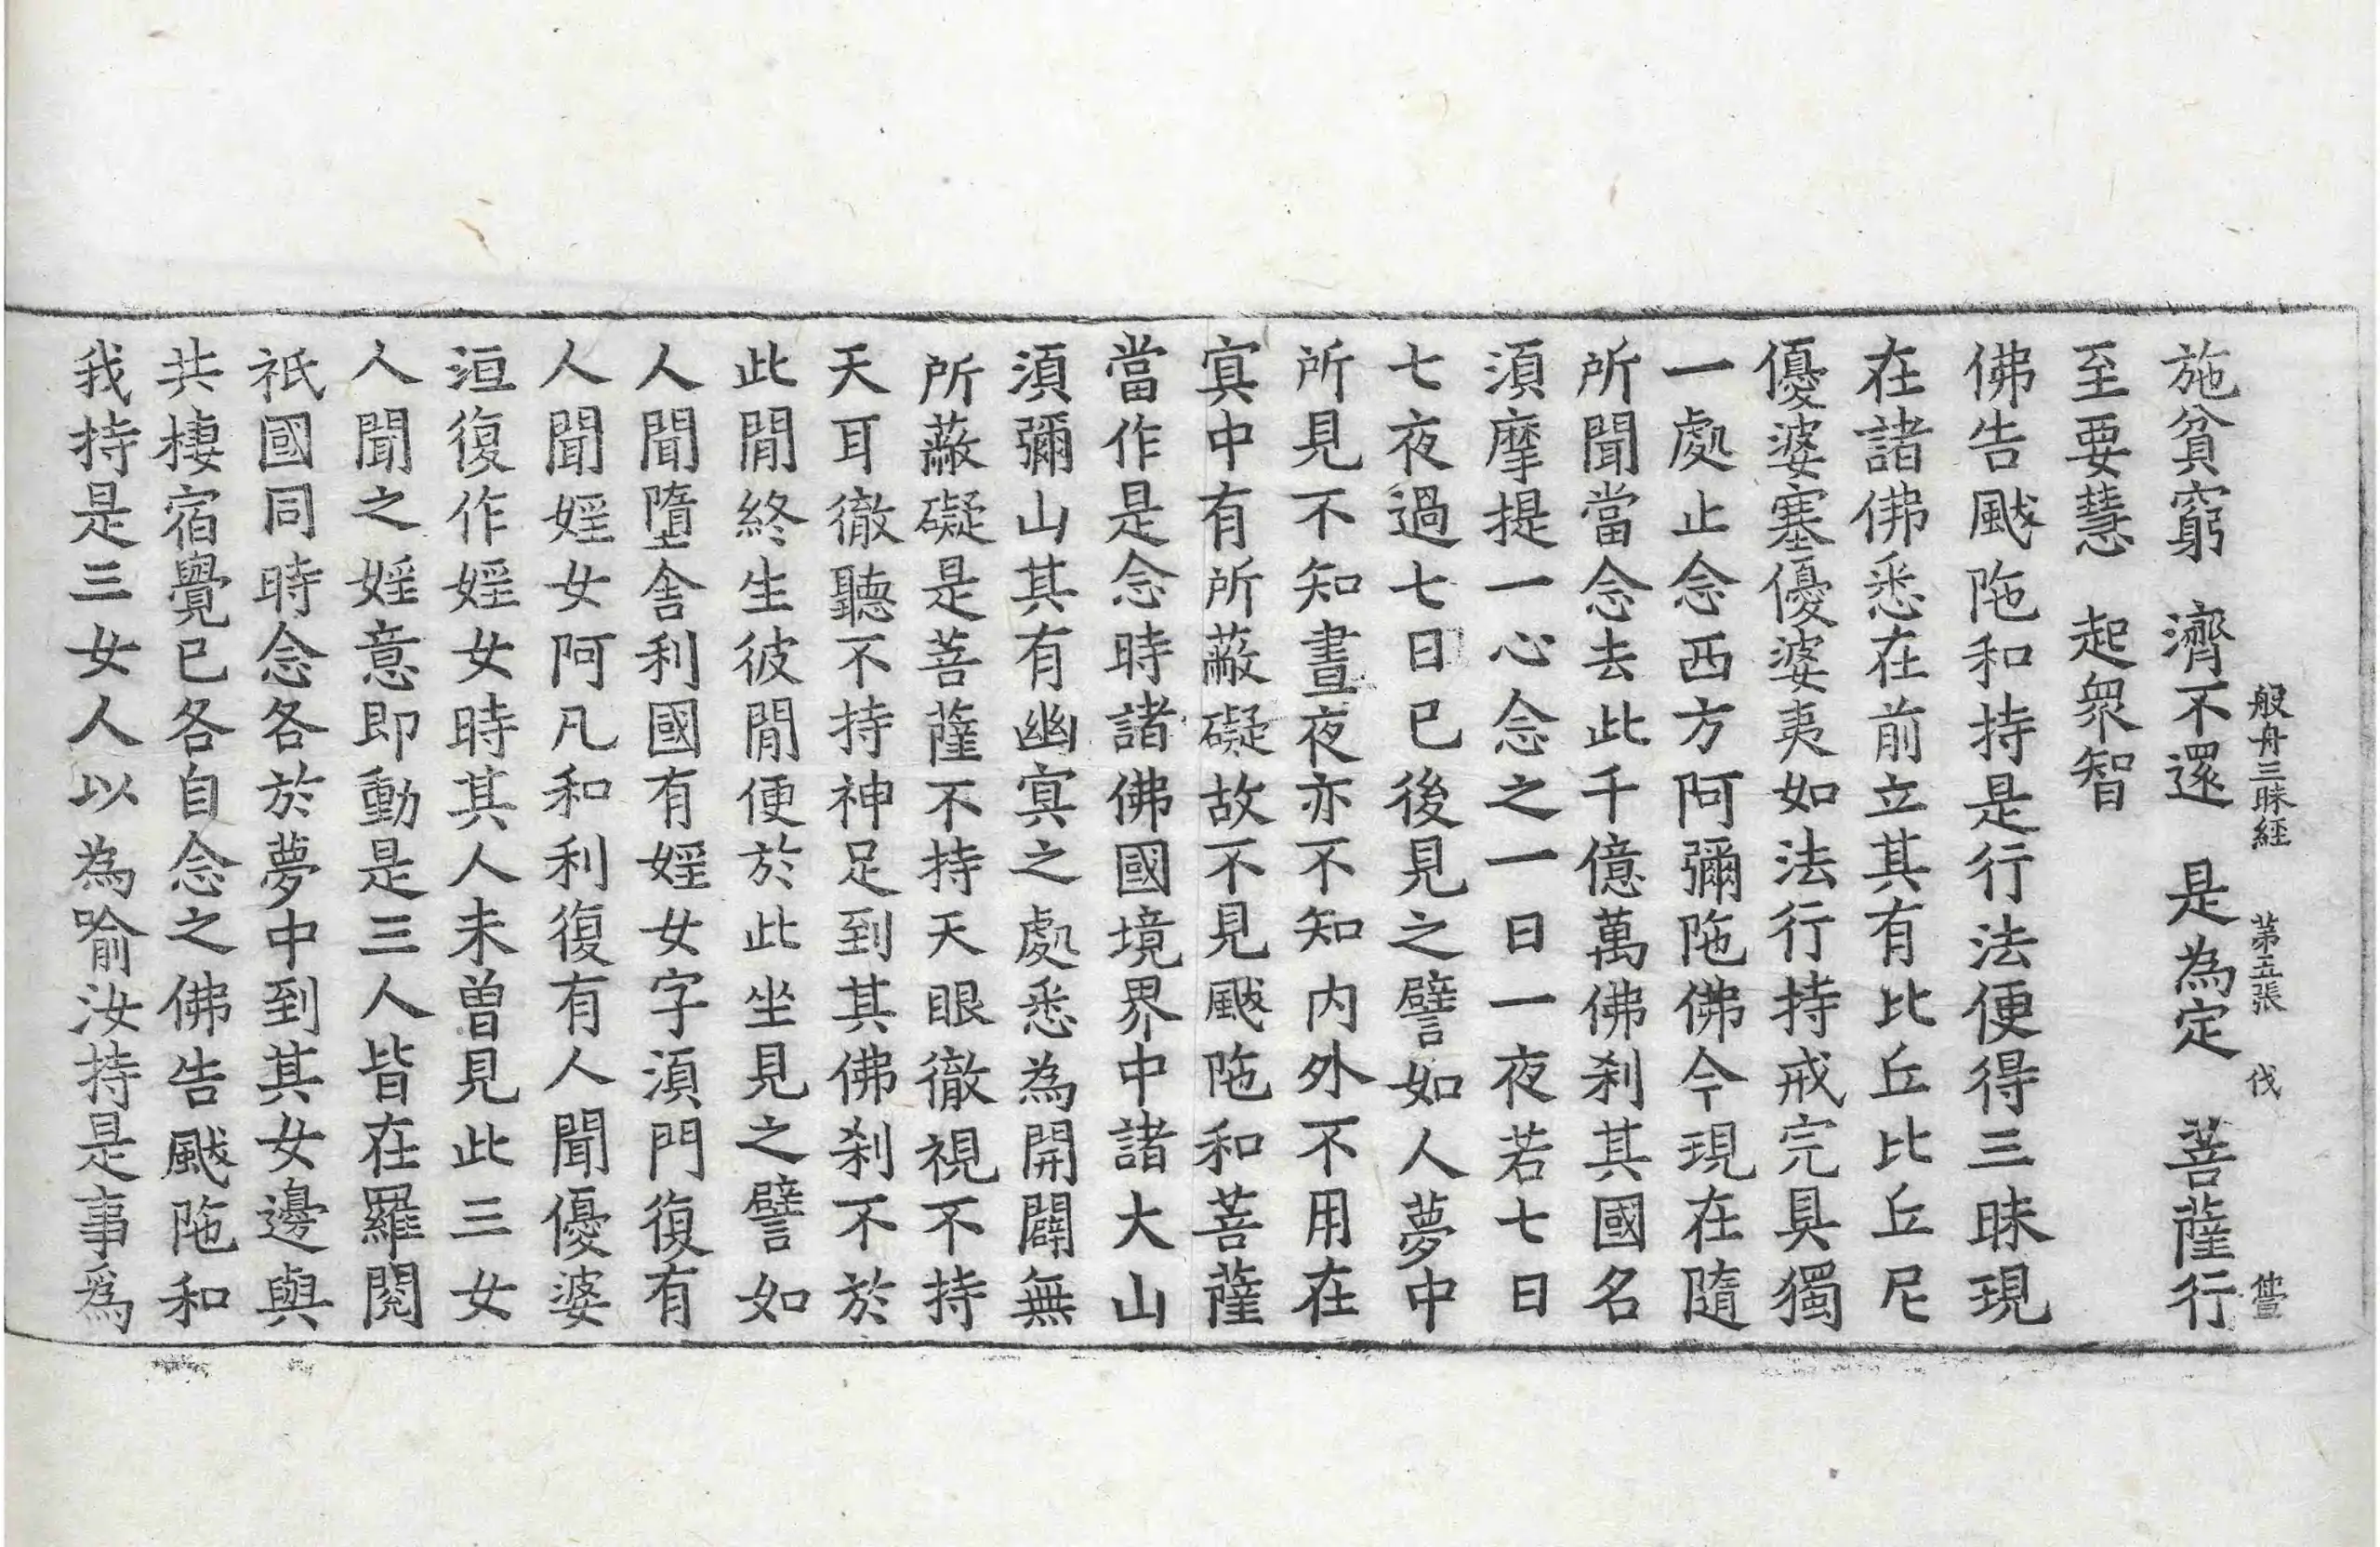 般舟三昧經 第五張 伐
施貧窮 濟不還 是為定 菩薩行
至要慧 起衆智
佛告颰陁和持是行法便得三昧現
在諸佛悉在前立其有比丘比丘尼
優婆塞優婆夷如法行持戒完具獨
一處止念西方阿彌陁佛今現在隨
所聞當念去此千億萬佛刹其國名
須摩提一心念之一日一夜若七日
七夜過七日已後見之譬如人夢中
所見不知晝夜亦不知內外不用在
㝠中有所蔽礙故不見颰陁和菩薩
當作是念時諸佛國境界中諸大山
須彌山其有幽㝠之處悉為開闢無
所蔽礙是菩薩不持天眼徹視不持
天耳徹聽不持神足到其佛刹不於
此閒終生彼閒便於此坐見之譬如
人聞墮舍利國有婬女字須門復有
人聞婬女阿凡和利復有人聞優婆
洹復作婬女時其人未曾見此三女
人聞之婬意即動是三人皆在羅閱
祇國同時念各於夢中到其女邊與
共棲宿覺已各自念之佛告颰陁和
我持是三女人以為喻汝持是事為